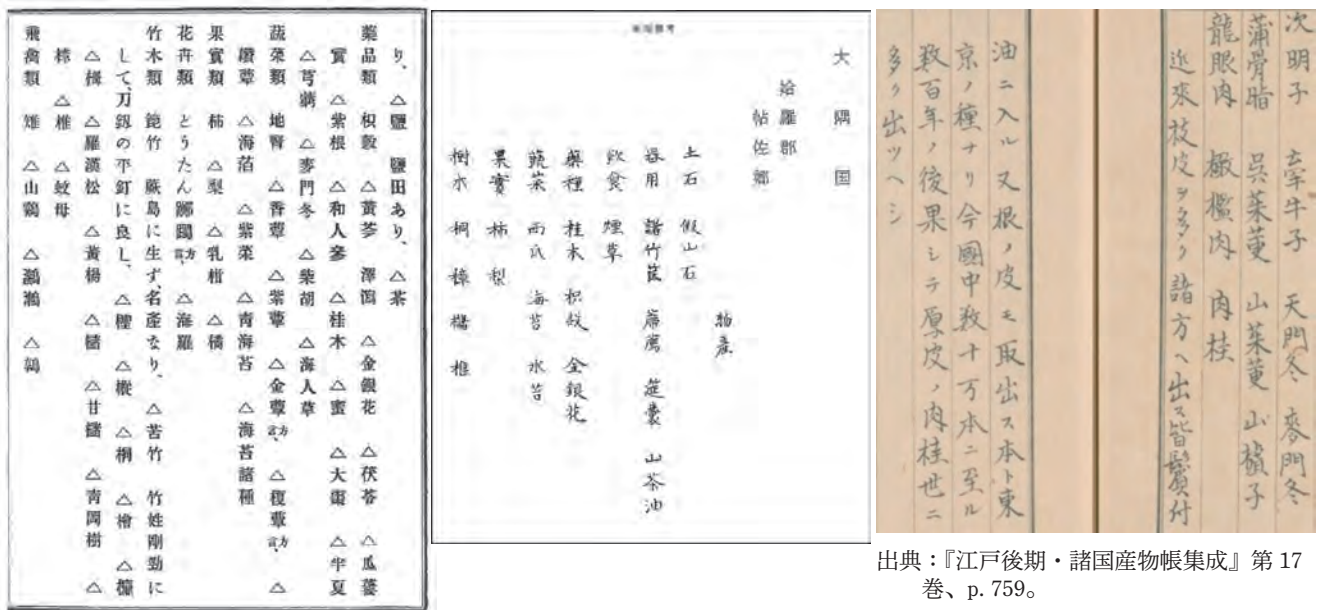 り、△鹽 鹽田あり、△茶
藥品類 枳殼 △黃芩 澤瀉 △金銀花 △茯苓 △瓜蔞
實 △紫根 △和人參 △桂木 △蜜 △大棗 △半夏
△芎藭 △麥門冬 △柴胡 △海人草
蔬菜類 地腎 △香蕈 △紫蕈 △金蕈方言、△榎蕈方言、△
鑽蕈 △海菭 △紫菜 △青海苔 △海苔諸種
果實類 柿 △梨 △乳柑 △橘
花卉類 とうたん躑躅方言、△海羅
竹木類 筦竹 蕨島に生ず、名產なり、△苦竹 竹姓剛勁に
して、刀釼の平釘に良し、△樫 △樅 △桐 △檜 △
△樹 △羅漢松 △黃楊 △櫧 △甘櫧 △青岡樹 △
柹 △椎 △蚊母
飛禽類 雉 △山鷄 △鸂鶒 △鶉
大隅国
姶羅郡
帖佐郷
物産
土石 假山石
器用 諸竹筐 簾 莚嚢 山茶油
飲食 煙草
藥種 桂木 枳殼 金銀花
蔬菜 西瓜 海苔 水苔
果實 柿 梨
樹木 桐 樟 櫧 椎
次明子 牽牛子 天門冬 麥門冬
蒲骨脂 呉茱萸 山茱萸 山樝子
龍眼肉 橄欖肉 肉桂
近來枝皮ヲ多ク諸方ヘ出ス皆鬢付
油ニ入ル又根ノ皮モ取出ス本ト東
京ノ種ナリ今國中数十万本ニ至ル
数百年ノ後果シテ厚皮ノ肉桂世ニ
多ク出ツヘシ
出典：『江戸後期・諸国産物帳集成』第 17
巻、p. 759。